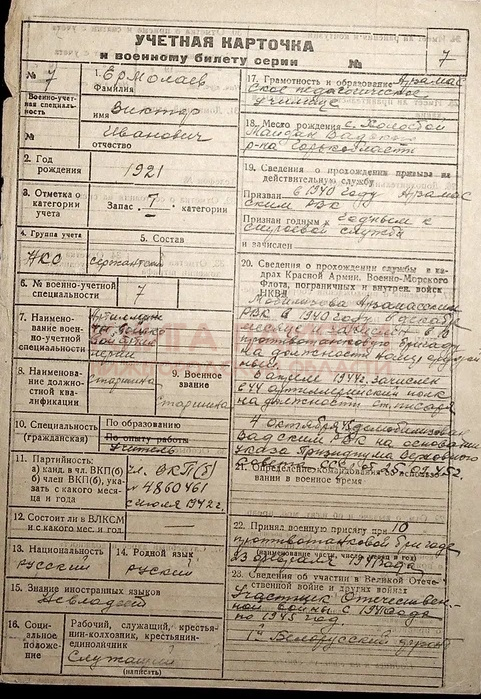 УЧЕТНАЯ КАРТОЧКА
к военному билету серии № 7
№ 7
Военно-учет-
ная специаль-
ность
№
1. Ермолаев
Фамилия
Виктор
имя
Иванович
отчество
2. Год
рождения
1921
3. Отметка о
категории
учета
Запас I категории
4. Группа учета
НКО
5. Состав
сержантский
6. № военно-учетной
специальности
7
7. Наименова-
ние воен-
но-учетной
специальности
8. Наименование
должност-
ной ква-
лификации
Старшина
9. Военное
звание
Старшина
10. Специальность
(гражданская)
По образованию
По опыту работы
Учитель
11. Партийность:
а) канд. в чл. ВКП(б)
б) член ВКП(б), ука-
зать с какого меся-
ца и года
чл. ВКП(б)
№ 4860461
1942 г.
12. Состоял ли в ВЛКСМ
и с какого мес. и год.
13. Национальность
Русский
14. Родной язык
Русский
15. Знание иностранных языков
Не владеет
16. Соци-
альное
положе-
ние
Рабочий, служащий, крестья-
нин-колхозник, крестьянин-
единоличник
Служащий
17. Грамотность и образование Арзамас
ское педагогическое
училище
18. Место рождения с. Холостой
Майдан Вадского
р-на Горьк. области
19. Сведения о прохождении призыва на
действительную службу
Призван в 1940 году Арзамас
ским РВК
Признан годным к годным к
строевой службе
и зачислен
20. Сведения о прохождении службы в ка-
драх Красной Армии, Военно-Морского
Флота, пограничных и внутрен. войск
НКВД
Мобилизован Арзамасским
РВК в 1940 году
в 10
противотанковую бригаду
на должность
В апреле 1944 г. зачислен
в 44 артиллерийский полк
на должность ст. писаря
4 октября демобилизован
Вадским РВК на основании
указа Президиума Верховного
Совета СССР от 25.09.45 г.
21. Определение командования об использов.
в военное время
22. Принял военную присягу при 10
противотанковой бригаде
(наименование части, число, месяц и год)
23 февраля 1941 года
23. Сведения об участии в Великой Отече-
ственной войне и других войнах
Участник Отечествен-
ной войны с 1941 года
по 1945 год.
1й Белорусский фронт